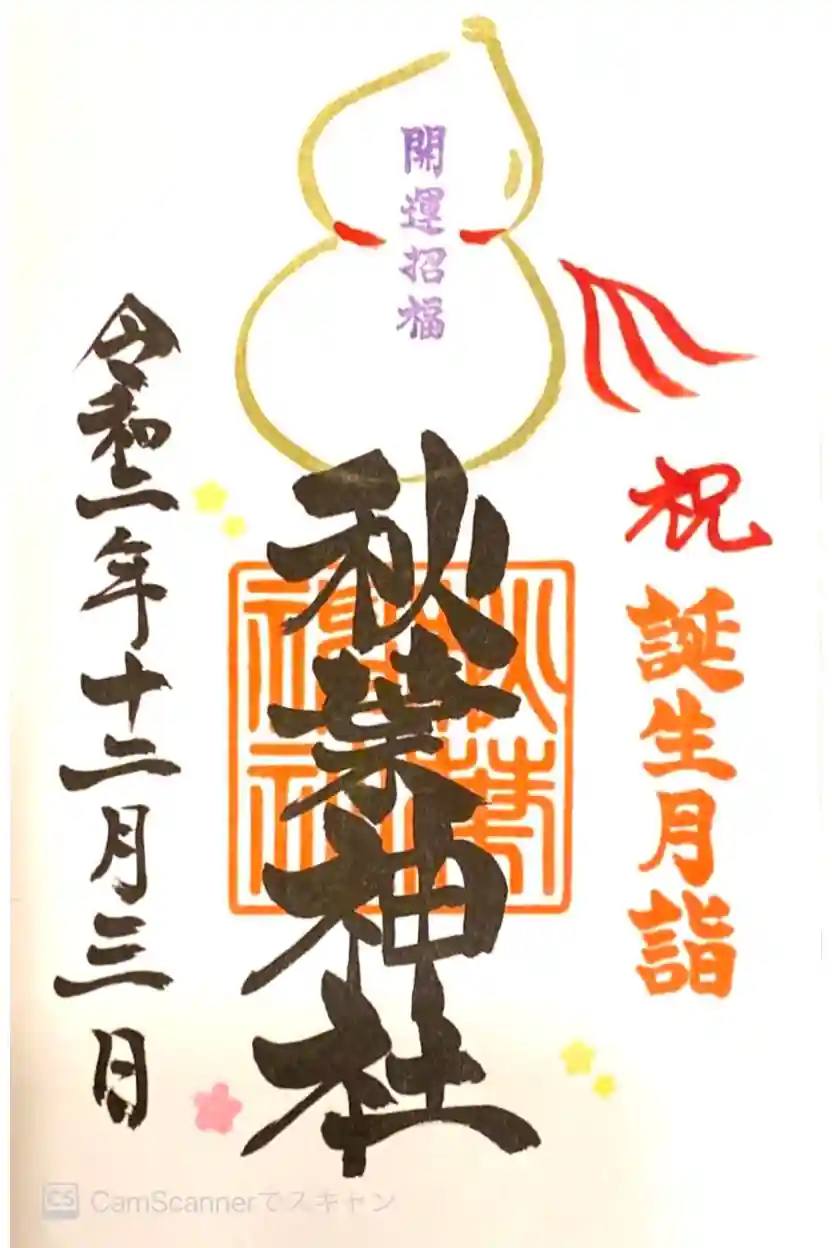 開運招福
祝
誕生月詣
秋葉神社
令和二年十二月三日
CS CamScannerでスキャン